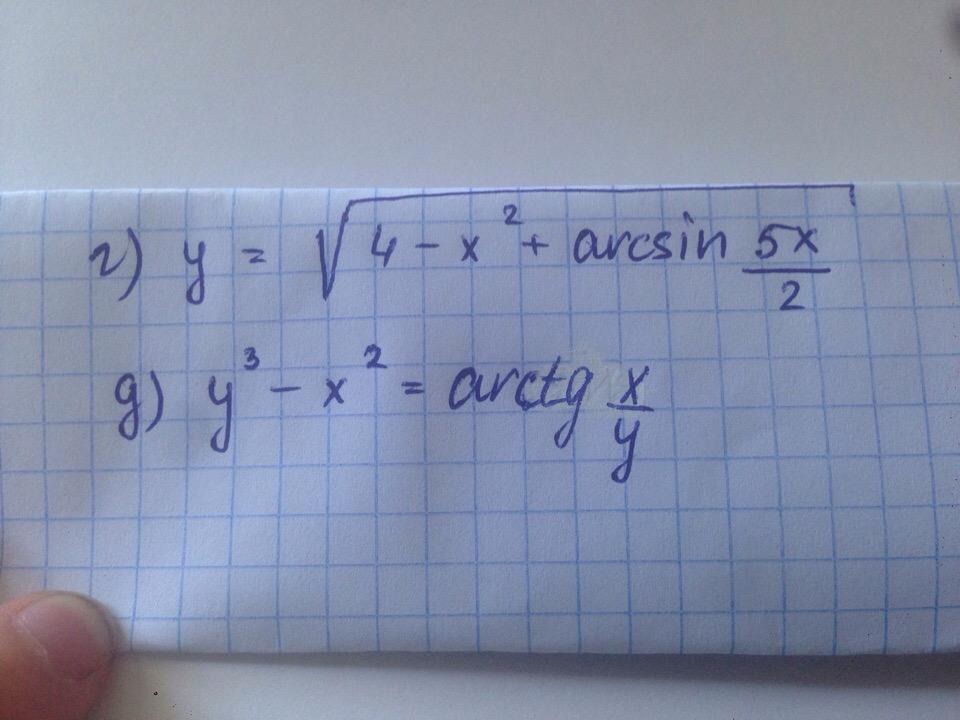 г) y = √(4 - x² + arcsin 5x/2)
д) y³ - x² = arctg x/y